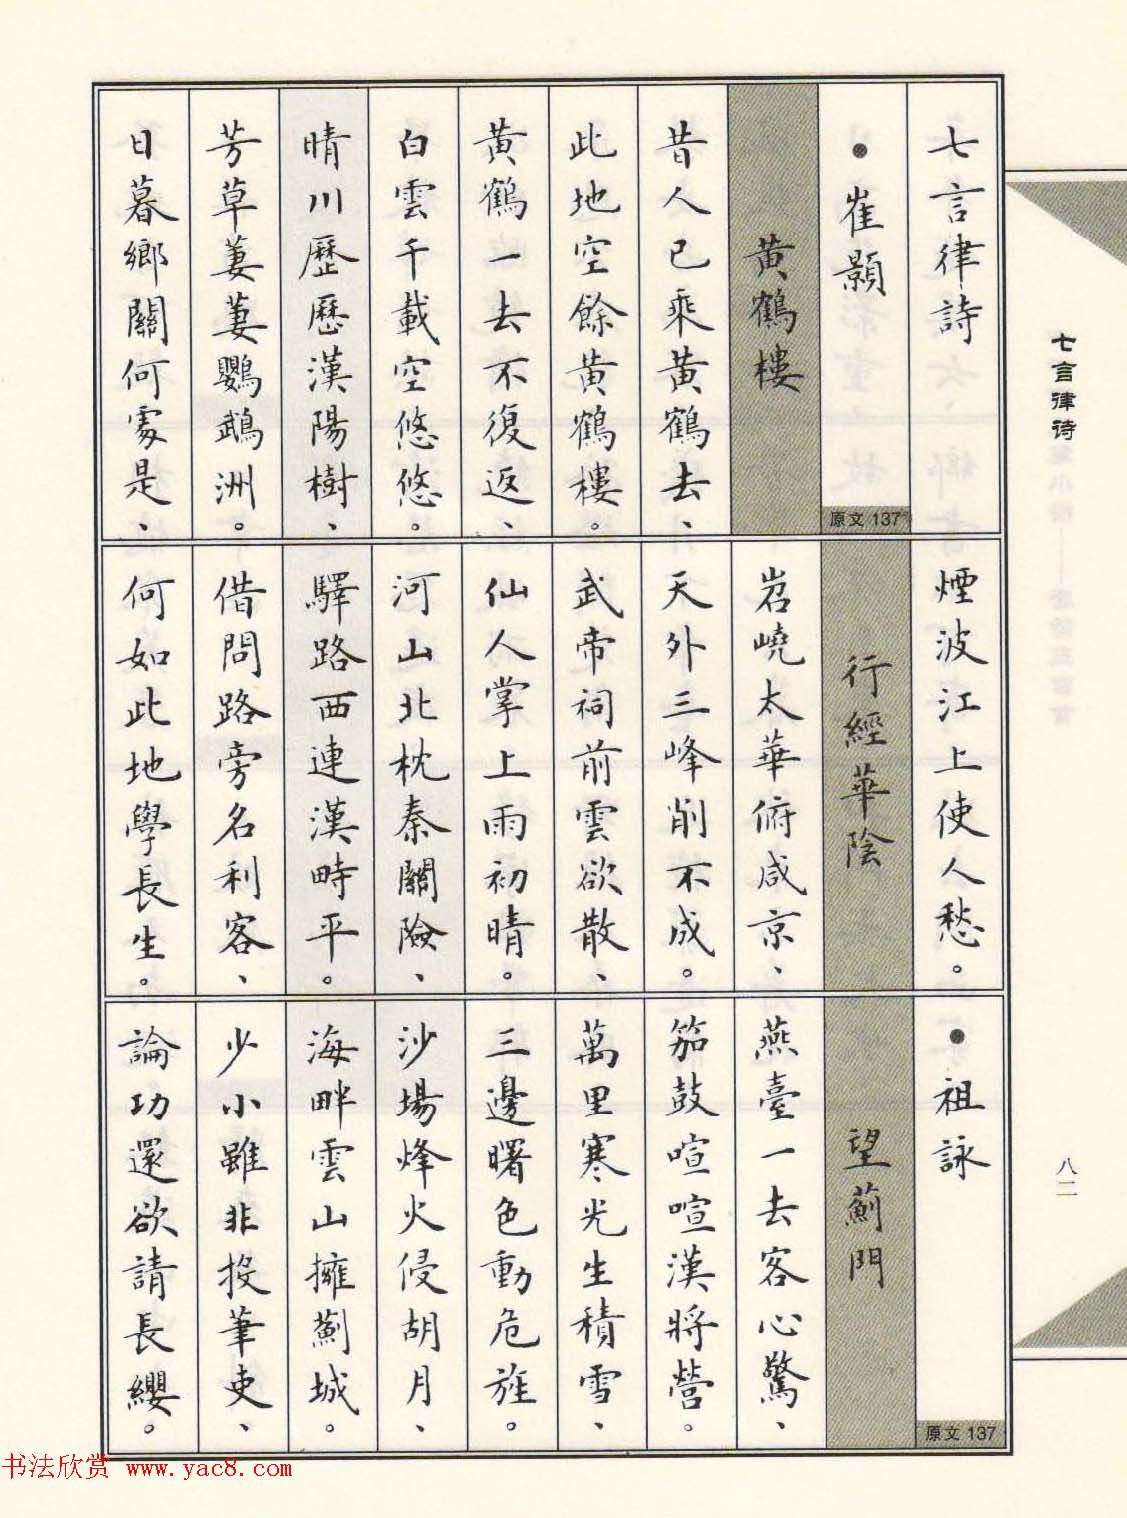 七言律詩
●崔顥
原文 137
黄鶴樓
昔人已乘黄鶴去、
此地空餘黄鶴樓。
黄鶴一去不復返、
白雲千載空悠悠。
晴川歷歷漢陽樹、
芳草萋萋鸚鵡洲。
日暮鄉關何處是、
煙波江上使人愁。
行經華陰
岧嶢太華俯咸京、
天外三峰削不成。
武帝祠前雲欲散、
仙人掌上雨初晴。
河山北枕秦關險、
驛路西連漢畤平。
借問路旁名利客、
何如此地學長生。
●祖詠
原文 137
望薊門
燕臺一去客心驚、
笳鼓喧喧漢將營。
萬里寒光生積雪、
三邊曙色動危旌。
沙場烽火侵胡月、
海畔雲山擁薊城。
少小雖非投筆吏、
論功還欲請長纓。
七言律诗
八二
书法欣赏 www.yac8.com